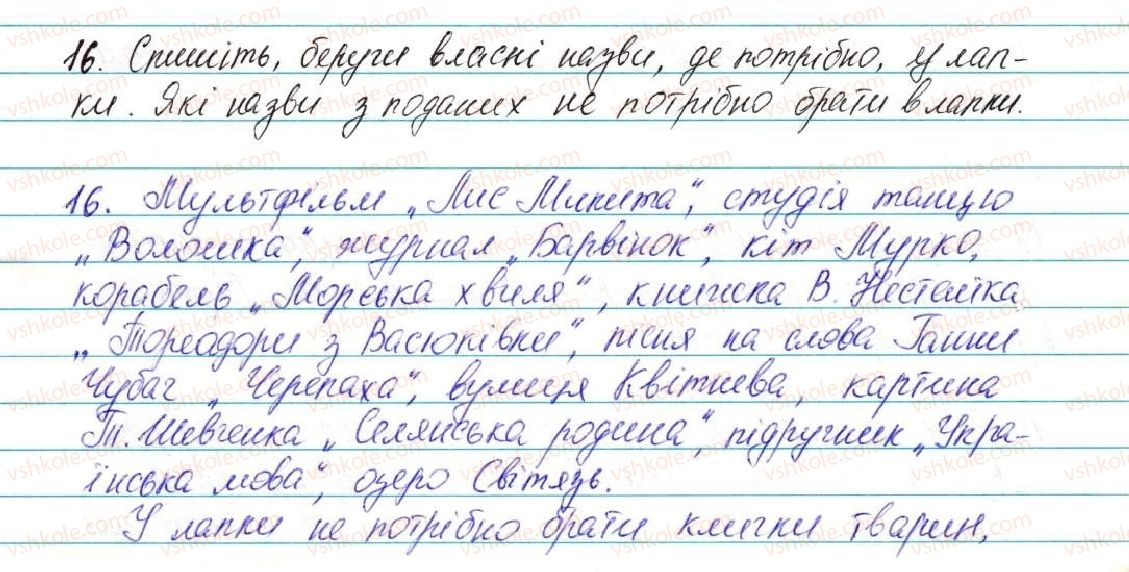 16. Спишіть, беручи власні назви, де потрібно, у лап-
ки. Які назви з поданих не потрібно брати в лапки.
16. Мультфільм „Лис Микита“, студія танцю
„Волошка“, журнал „Барвінок“, кіт Мурко,
корабель „Морська хвиля“, книжка В. Нестайка
„Тореадори з Васюківки“, пісня на слова Ганни
Чубач „Черепаха“, вулиця Квітнева, картина
Т. Шевченка „Селянська родина“, підручник „Укра-
їнська мова“, озеро Світязь.
У лапки не потрібно брати клички тварин,